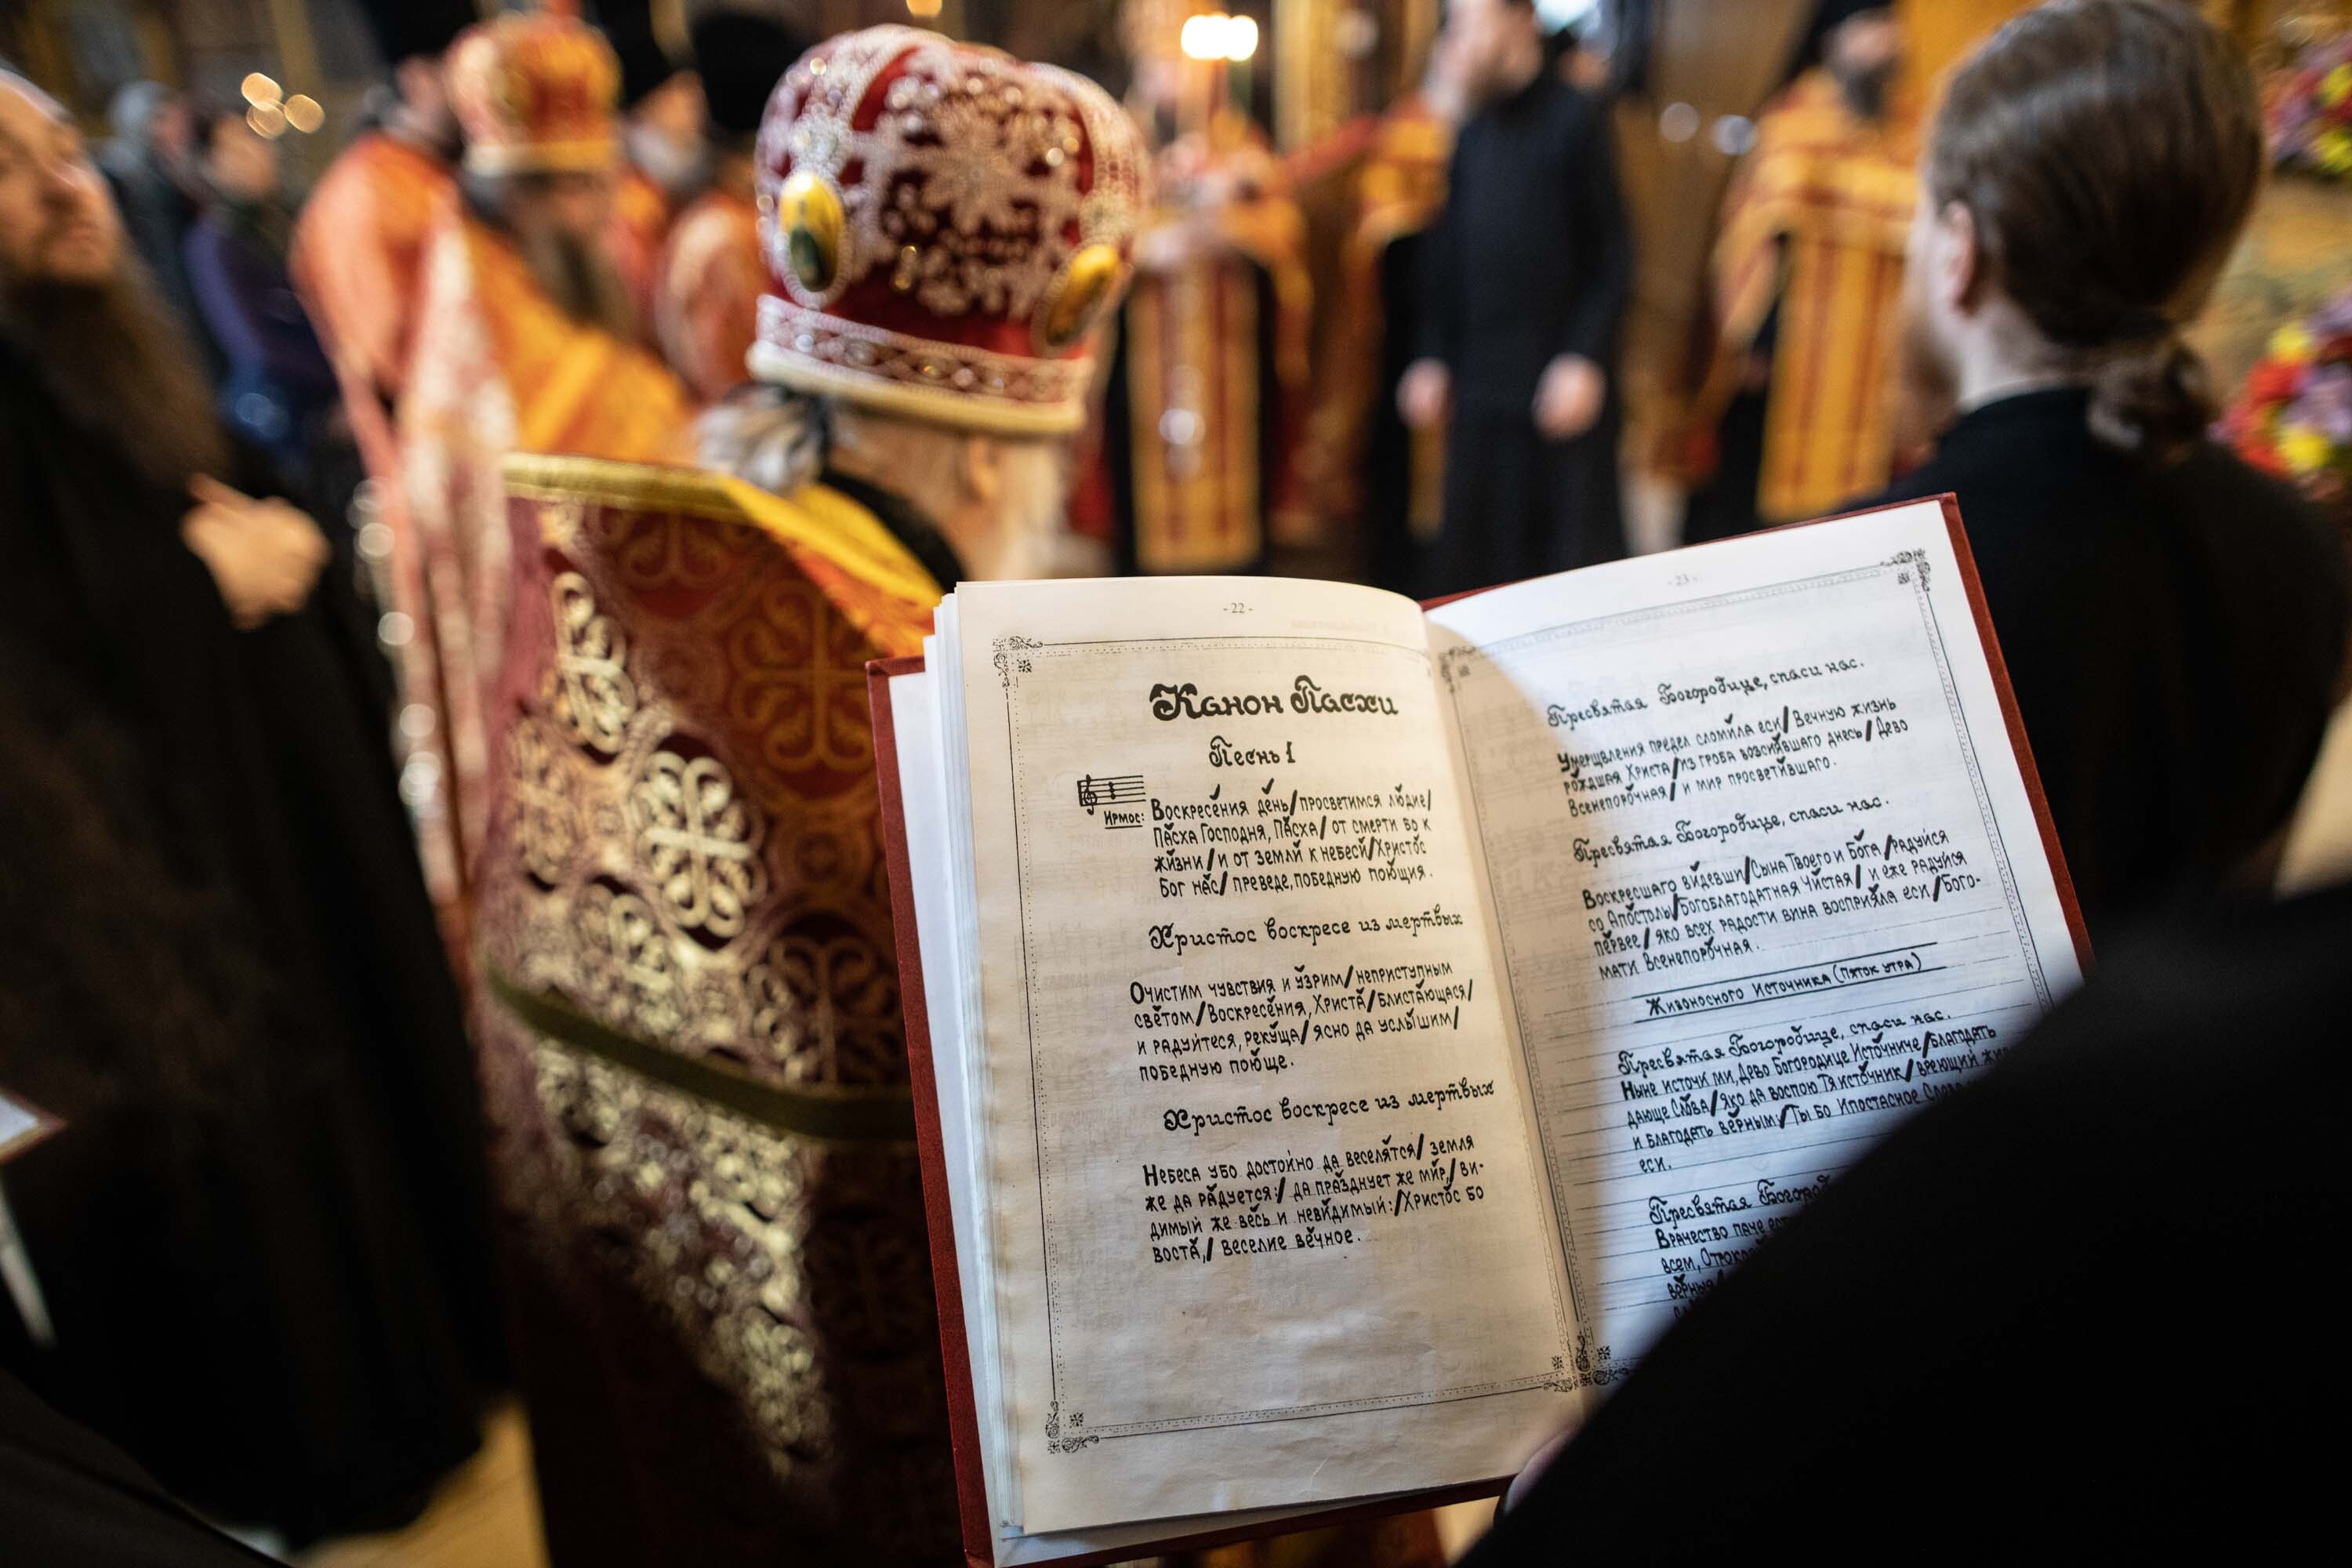 - 22 -
Канон Пасхи
Песнь 1
Ирмос: Воскресе́ния де́нь/просветимся лю́дие/
Па́сха Господня, Па́сха/ от смерти бо к
жи́зни/и от земли́ к небеси́/Христо́с
Бог на́с/ преведе, победную пою́щия.
Христос воскресе из мертвых
Очистим чувствия и у́зрим/неприступным
све́том/Воскресе́ния, Христа́/блиста́ющася/
и радуйтеся, реку́ща/ ясно да услы́шим/
победную пою́ще.
Христос воскресе из мертвых
Небеса убо досто́йно да веселя́тся/ земля
же да ра́дуется:/ да пра́зднует же ми́р,/ ви-
димый же ве́сь и неви́димый:/Христо́с бо
воста́,/ веселие ве́чное.
- 23 -
Пресвятая Богородице, спаси нас.
Умерщвления предел сломи́ла еси/ Вечную жизнь
ро́ждшая Христа/из гроба возсия́вшаго днесь/ Дево
Всенепоро́чная/ и мир просвети́вшаго.
Пресвятая Богородице, спаси нас.
Воскресшаго ви́девши/Сына Твоего и Бо́га/ра́дуйся
со Апо́столы/Богоблагодатная Чи́стая/ и еже ра́дуйся
пе́рвее/ яко всех радости вина восприя́ла еси/Бого-
мати Всенепоро́чная.
Живоносного Источника (пяток утра)
Пресвятая Богородице, спаси нас.
Ныне источи́ ми, Дево Богородице Исто́чниче/благодать
дающе Сло́ва/ яко да воспою Тя исто́чник/
и благодать ве́рным:/ Ты бо Ипостасное
еси.
Пресвятая
Врачество паче
всем,
ве́рныя